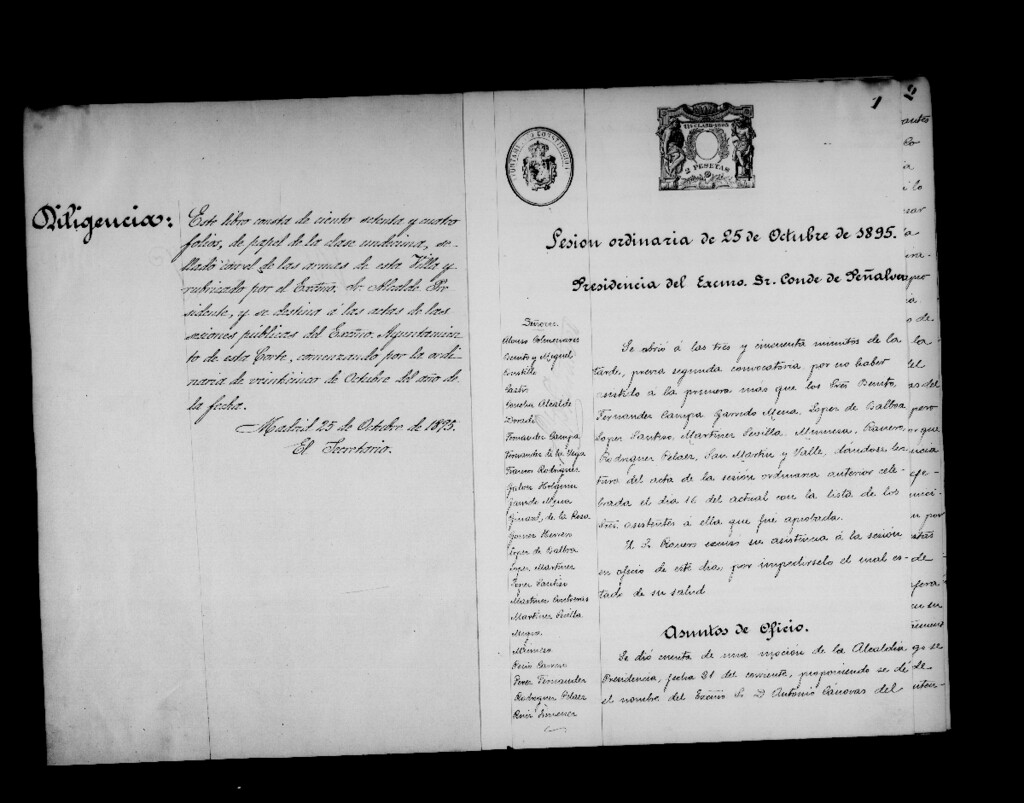 Diligencia:
Este libro consta de ciento setenta y cuatro
folios, de papel de la clase undécima, se-
llado con el de las armas de esta Villa y
rubricado por el Excmo. Sr. Alcalde Pre
sidente, y se destina á las actas de las
sesiones públicas del Excmo. Ayuntamien-
to de esta Corte, comenzando por la ordi-
naria de veinticinco de Octubre del año de
la fecha.
Madrid 25 de Octubre de 1895.
El Secretario.
1
2 PESETAS
Sesion ordinaria de 25 de Octubre de 1895.
Presidencia del Excmo. Sr. Conde de Peñalver
Señores
Alonso Colmenares
Benito y Miguel
Castro
Concha Alcalde
Dorado
Fernandez Campa
Fernandez de la Vega
Franco Rodriguez
Galvez Holguin
Garrido Mena
Ginard de la Rosa
Gomez Herrero
Lopez de Balboa
Lopez Martinez
Lopez Santiso
Martinez Contreras
Martinez Sevilla
Minuesa
Perez Fernandez
Rodriguez Pelaez
Ruiz Jimenez
Se abrió á las tres y cincuenta minutos de la
tarde, previa segunda convocatoria por no haber
asistido á la primera más que los Sres Benito,
Fernandez Campa, Garrido Mena, Lopez de Balboa,
Lopez Santiso, Martinez Sevilla, Minuesa, Ranero,
Rodriguez Pelaez, San Martin y Valle, dándose lec
tura del acta de la sesión ordinaria anterior cele-
brada el dia 16 del actual con la lista de los
Sres. asistentes á ella que fué aprobada.
El Sr. Ranero excusó su asistencia á la sesión
en oficio de este dia, por impedirselo el mal es-
tado de su salud
Asuntos de Oficio.
Se dió cuenta de una moción de la Alcaldia
Presidencia, fecha 21 del corriente, proponiendo se dé
el nombre del Excmo Sr. D Antonio Cánovas del